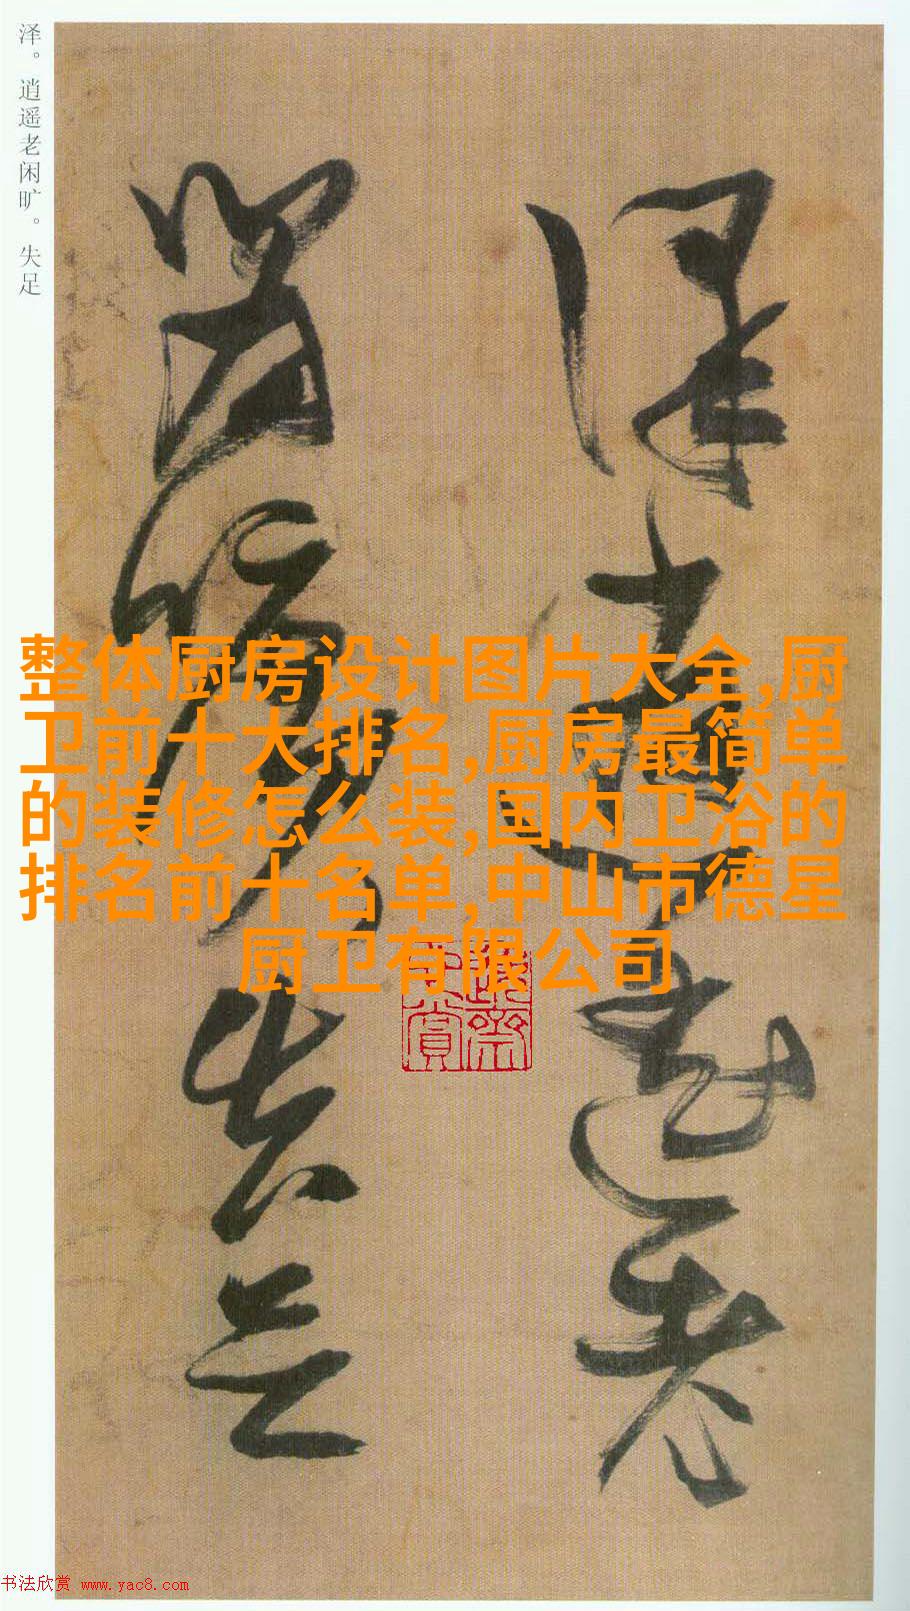 泽。逍遥老闲旷。失足
泽逍遥老
闲旷失足
整体厨房设计图片大全,厨
卫前十大排名,厨房最简单
的装修怎么装,国内卫浴的
排名前十名单,中山市德星
厨卫有限公司
书法欣赏 www.yac8.com